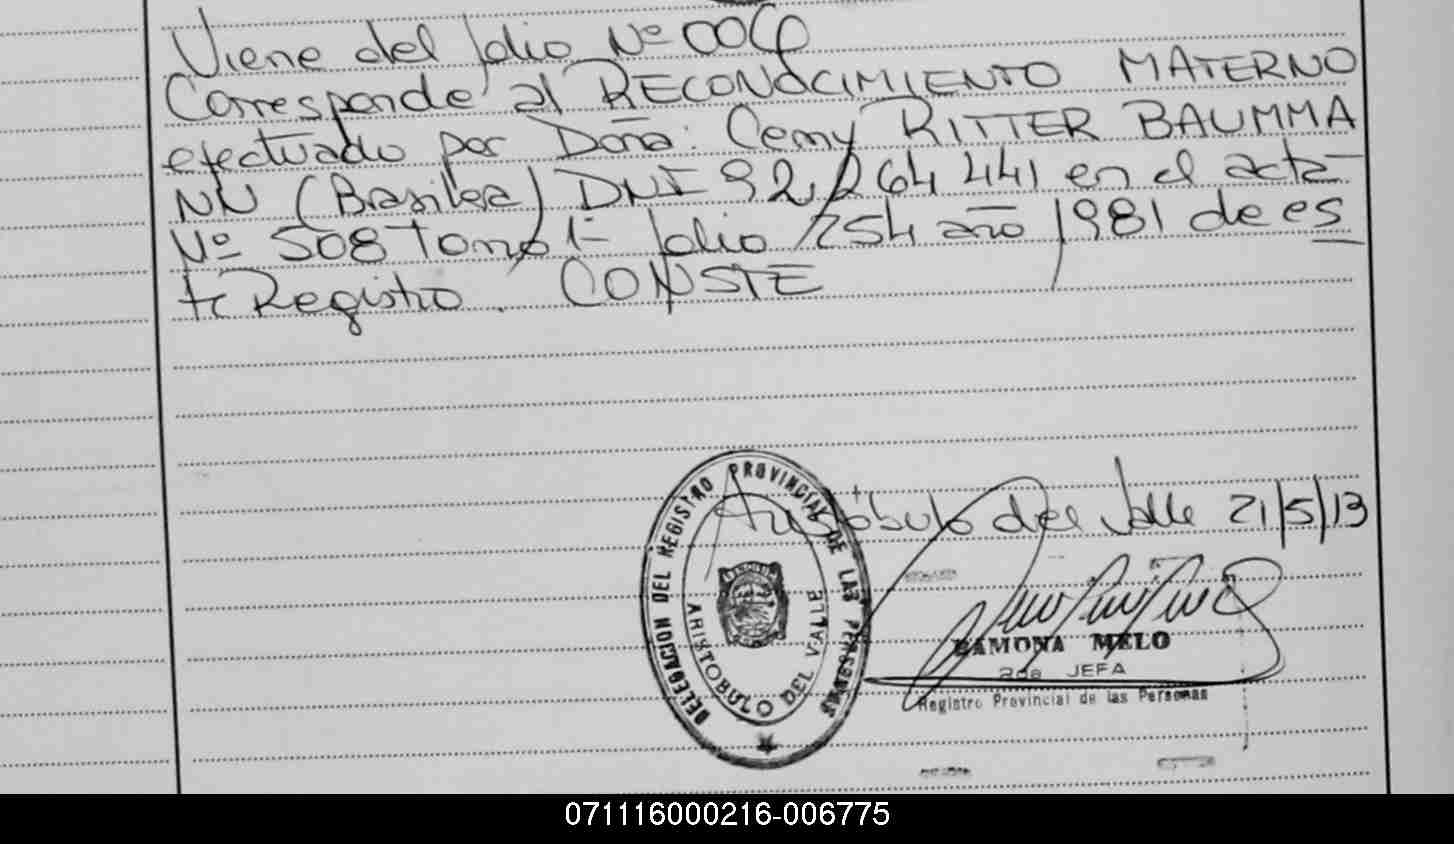 Viene del folio Nº 006
Corresponde al RECONOCIMIENTO MATERNO
efectuado por Doña: Ceny RITTER BAUMMA
NN (Brasilera) DNI 92.264.441 en el acta
Nº 508 Tomo 1- folio 254 año 1981 de es
te Registro. CONSTE
Aristóbulo del Valle 21/5/13
DELEGACION DEL REGISTRO PROVINCIAL DE LAS PERSONAS
ARISTOBULO DEL VALLE
RAMONA MELO
2da JEFA
Registro Provincial de las Personas
071116000216-006775